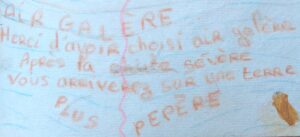 AIR GALÈRE
Merci d'avoir choisi air galère
Après la chute sévère
vous arriverez sur une terre
PLUS PEPÈRE